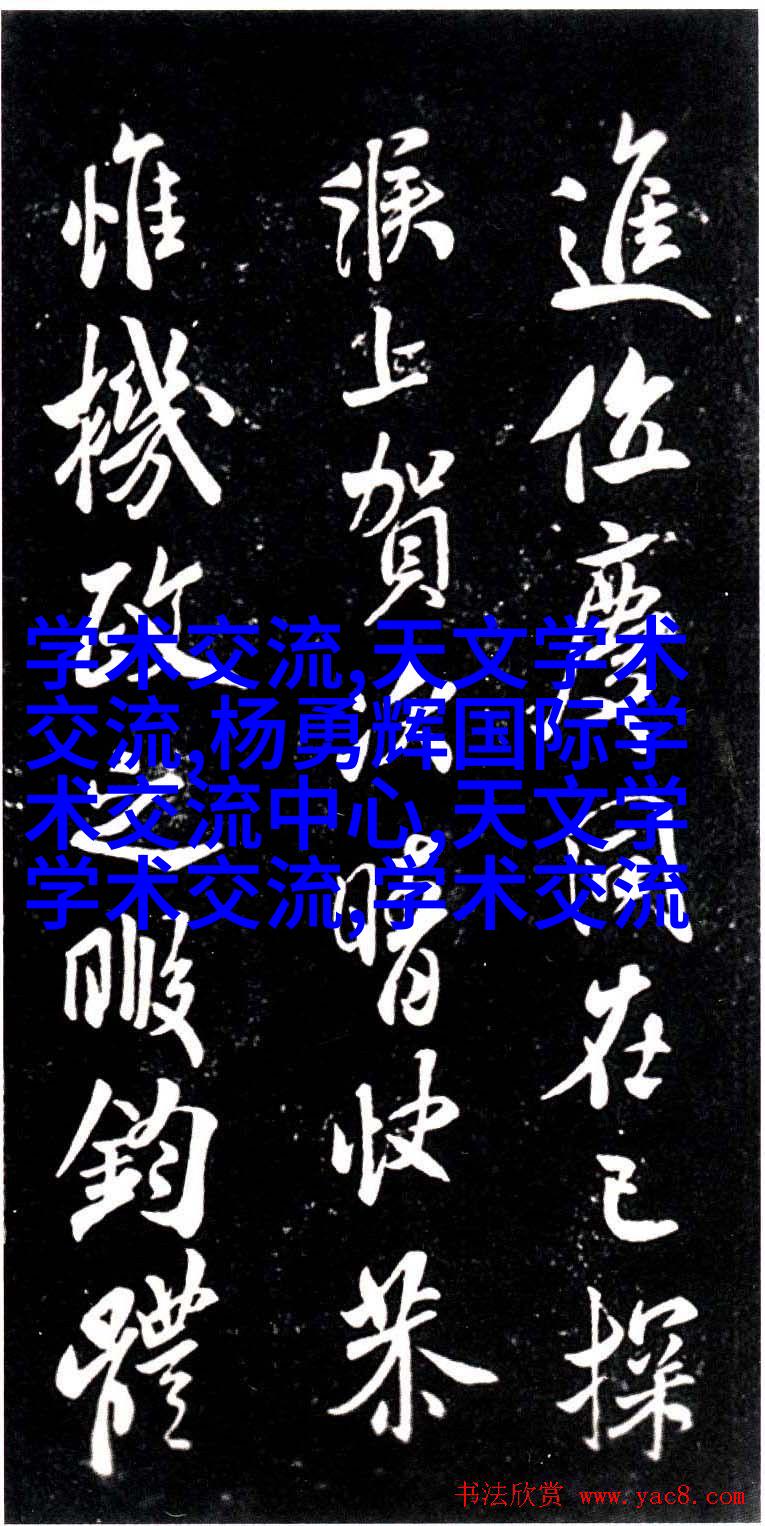 進位慶同在己探
候上賀
晴快恭
惟機政之暇鈞體
学术交流,天文学术
交流,杨勇辉国际学
术交流中心,天文学
学术交流,学术交流
书法欣赏 www.yac8.com